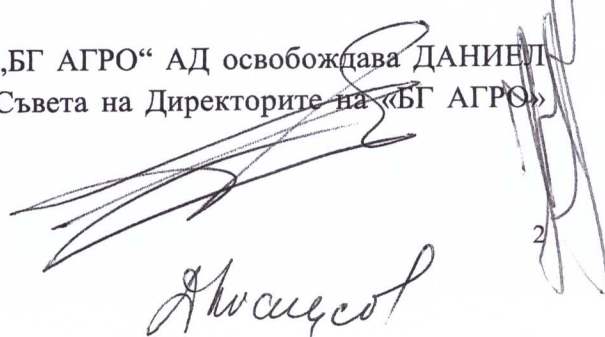 „БГ АГРО“ АД освобождава ДАНИЕЛ
Съвета на Директорите на «БГ АГРО»
2